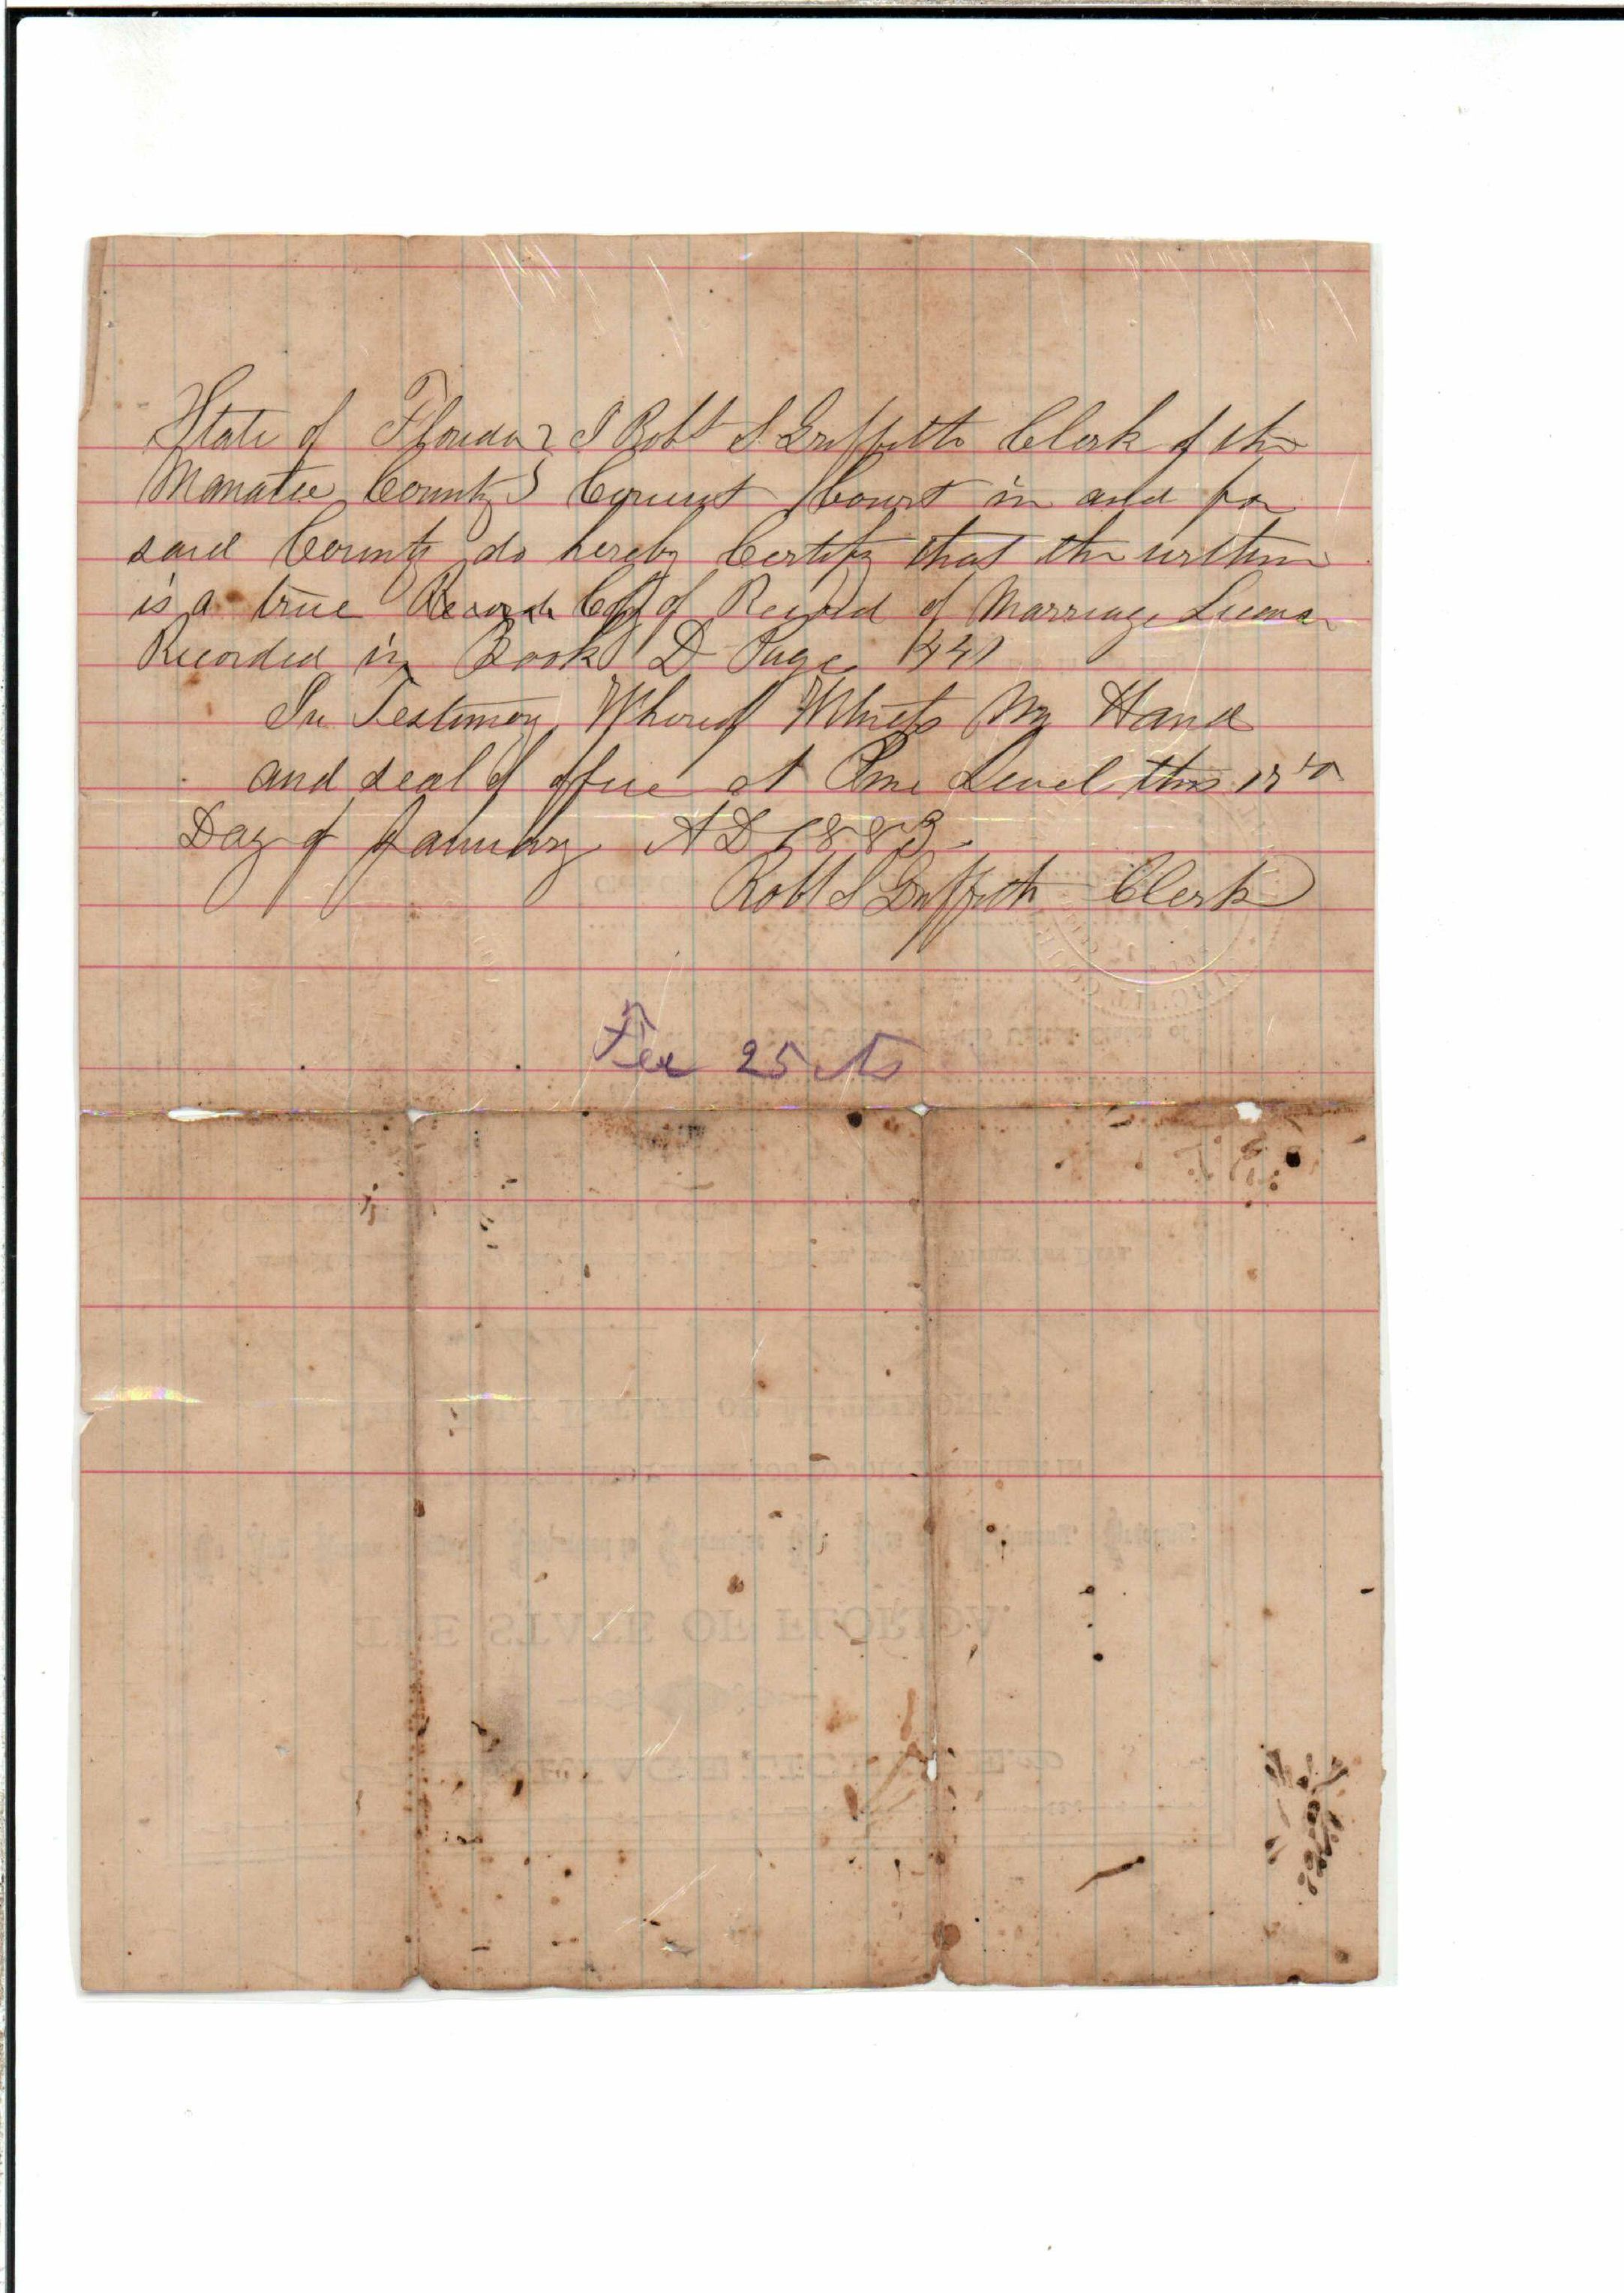 State of Florida } I Robt S. Griffith Clerk of the
Manatee County } Circuit Court in and for
said County do hereby Certify that the within
is a true Record Copy of Record of Marriage License
Recorded in Book D Page
In Testimony Whereof Witness My Hand
and seal of office at Pine Level this
Day of January A D 1883.
Robt S Griffith Clerk
Fee 25 cts
THE STATE OF FLORIDA.